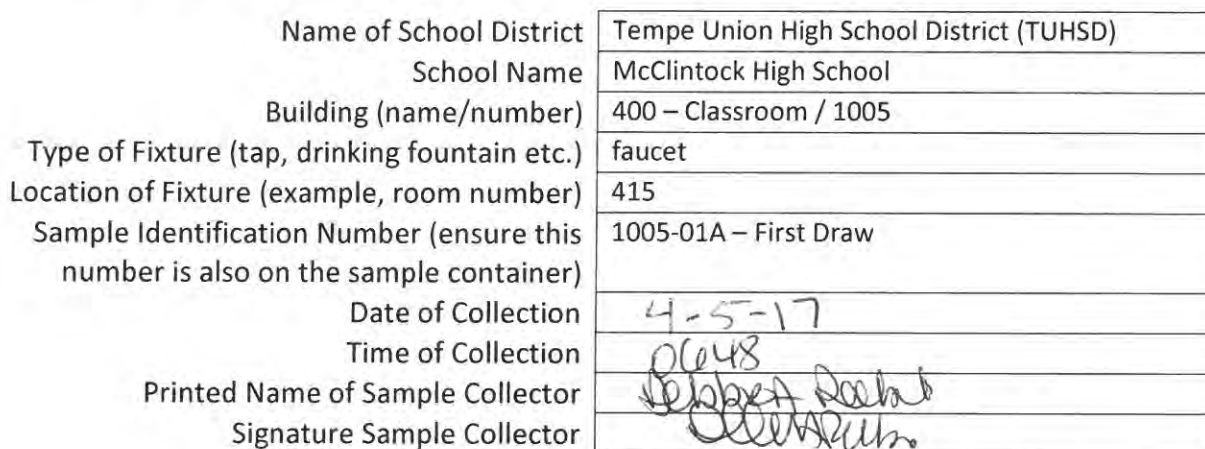 Name of School District Tempe Union High School District (TUHSD)
School Name McClintock High School
Building (name/number) 400 – Classroom / 1005
Type of Fixture (tap, drinking fountain etc.) faucet
Location of Fixture (example, room number) 415
Sample Identification Number (ensure this 1005-01A – First Draw
number is also on the sample container)
Date of Collection 4-5-17
Time of Collection 0648
Printed Name of Sample Collector
Signature Sample Collector